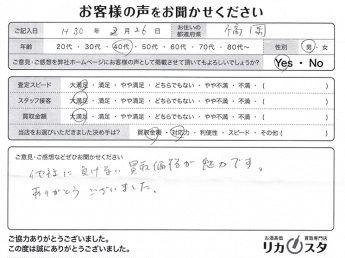 お客様の声をお聞かせください
ご記入日 H30年 3月 26日 お住いの都道府県 福岡
年齢 20代・30代・40代・50代・60代・70代・80代〜 性別 男・女
ご意見・ご感想を弊社ホームページにお客様の声として掲載させて頂いてもよろしいでしょうか? Yes・No
査定スピード 大満足・満足・やや満足・どちらでもない・やや不満・不満・( )
スタッフ接客 大満足・満足・やや満足・どちらでもない・やや不満・不満・( )
買取金額 大満足・満足・やや満足・どちらでもない・やや不満・不満・( )
当店をお選びいただきました決め手は? 買取金額・対応力・利便性・スピード・その他( )
ご意見・ご感想などぜひお聞かせください
他社に負けない買取価格が魅力です。
ありがとうございました。
ご協力ありがとうございました。
この度は誠にありがとうございました。
お酒高価買取専門店
リカスタ